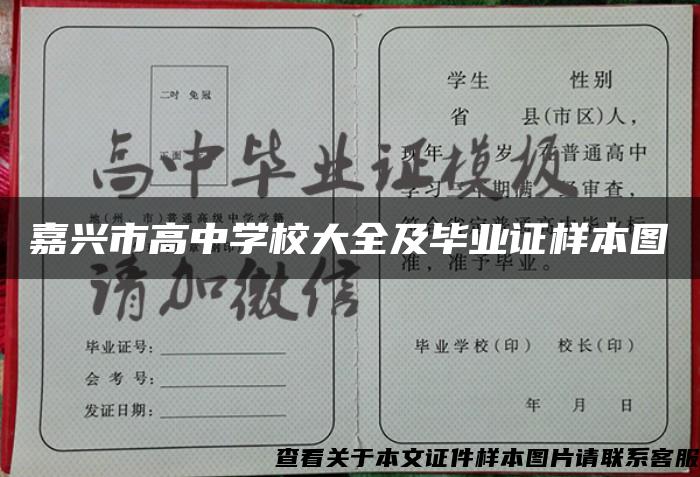 二吋 免冠
正面
地(州、市)普通高级中学学籍
毕业证号:
会考号:
发证日期:
学生 性别
省 县(市区)人,
现年 岁,在普通高中
学习 期满, 审查,
准,准予毕业。
毕业学校(印) 校长(印)
年 月 日
高中毕业证模板
请加微信
嘉兴市高中学校大全及毕业证样本图
查看关于本文证件样本图片请联系客服